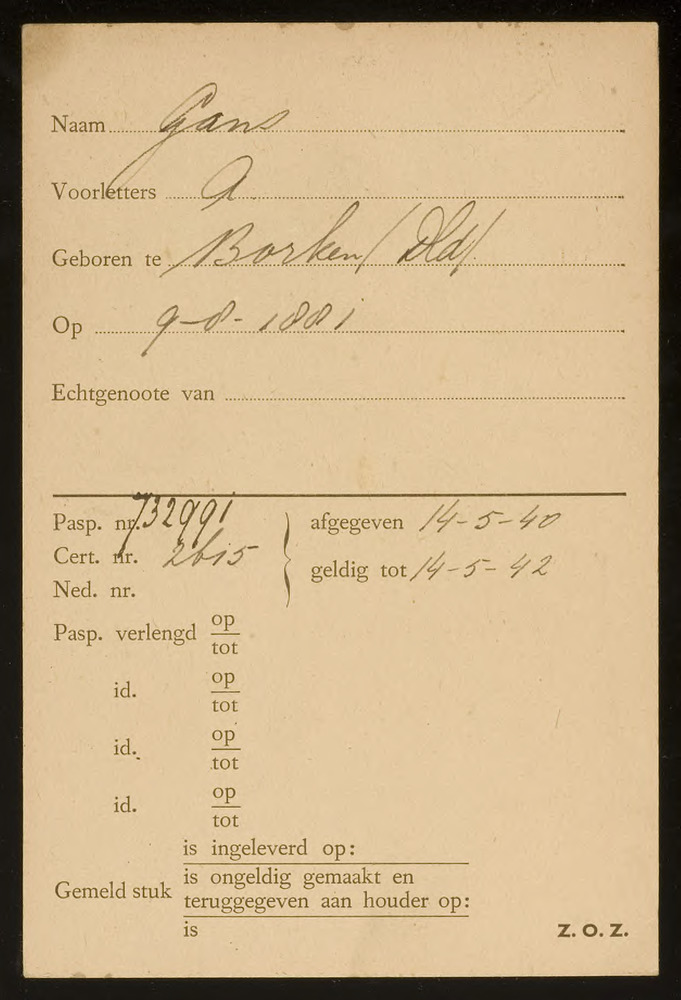 Naam Gans
Voorletters A
Geboren te Borken / Dld /
Op 9-8-1881
Echtgenoote van
Pasp. nr. 732991 afgegeven 14-5-40
Cert. nr. 2615
geldig tot 14-5-42
Ned. nr.
Pasp. verlengd op
tot
id. op
tot
id. op
tot
id. op
tot
is ingeleverd op:
Gemeld stuk is ongeldig gemaakt en
teruggegeven aan houder op:
is
Z. O. Z.